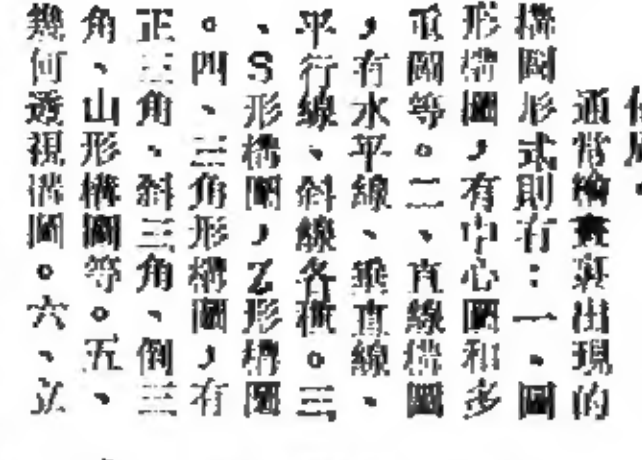 通常繪畫裏出現的
構圖形式則有：一、圖
形構圖，有中心圖和多
重圖等。二、直線構圖
，有水平線、垂直線、
平行線、斜線各種。三
、S形構圖，Z形構圖
。四、三角形構圖，有
正三角、斜三角、倒三
角、山形構圖等。五、
幾何透視構圖。六、